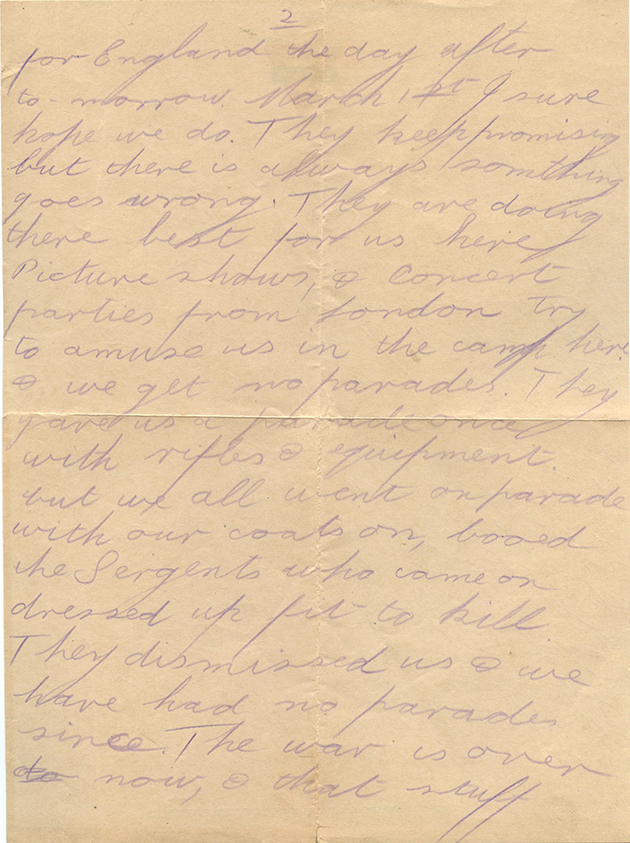 2
for England the day after
to-morrow. March 1st I sure
hope we do. They keep promising
but there is always something
goes wrong. They are doing
there best for us here
Picture shows, & Concert
parties from London try
to amuse us in the camp here
& we get no parades. They
gave us a parade once
with rifles & equipment.
but we all went on parade
with our coats on, booed
the Sergents who came on
dressed up fit to kill.
They dismissed us & we
have had no parades
since. The war is over
now, & that stuff